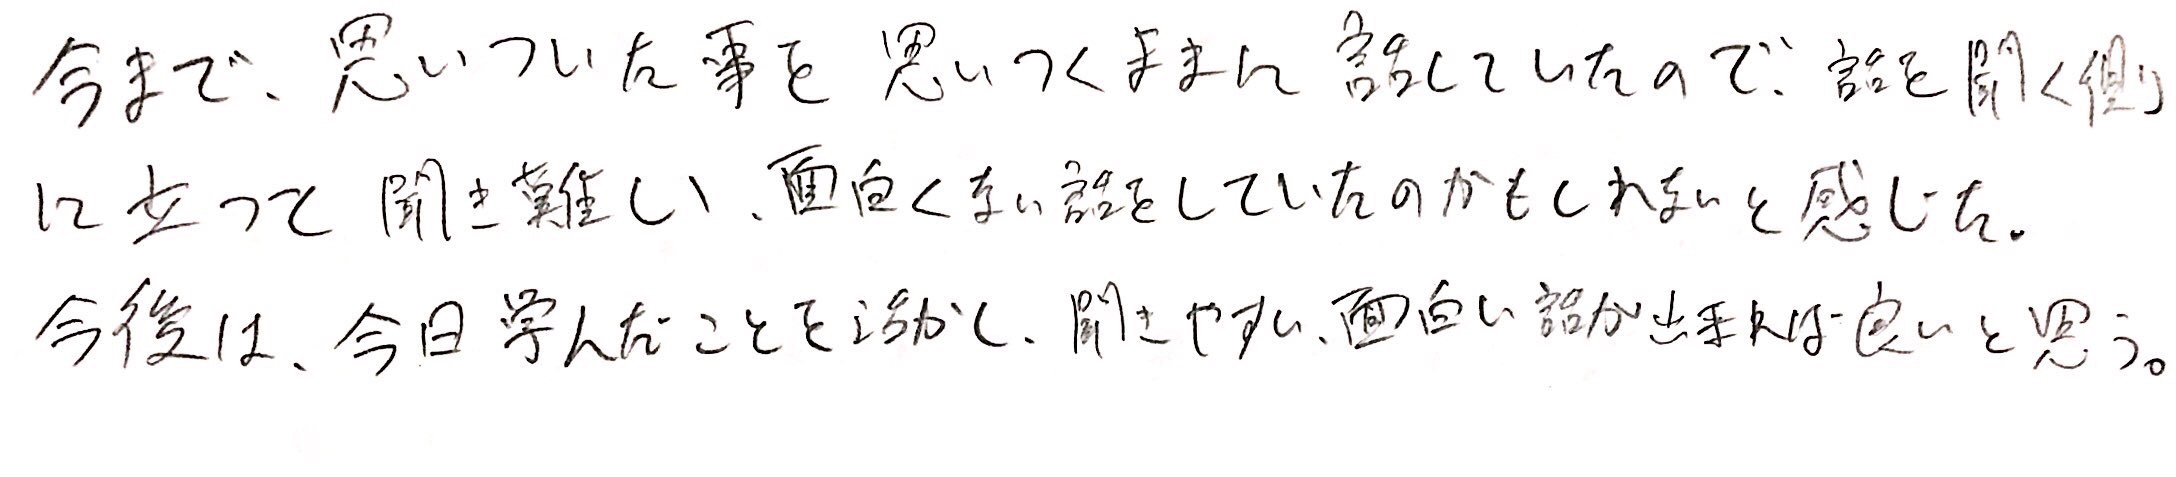 今まで、思いついた事を思いつくままに話していたので、話を聞く側
に立って聞き難しい、面白くない話をしていたのかもしれないと感じた。
今後は、今日学んだことを活かし、聞きやすい、面白い話が出来れば良いと思う。